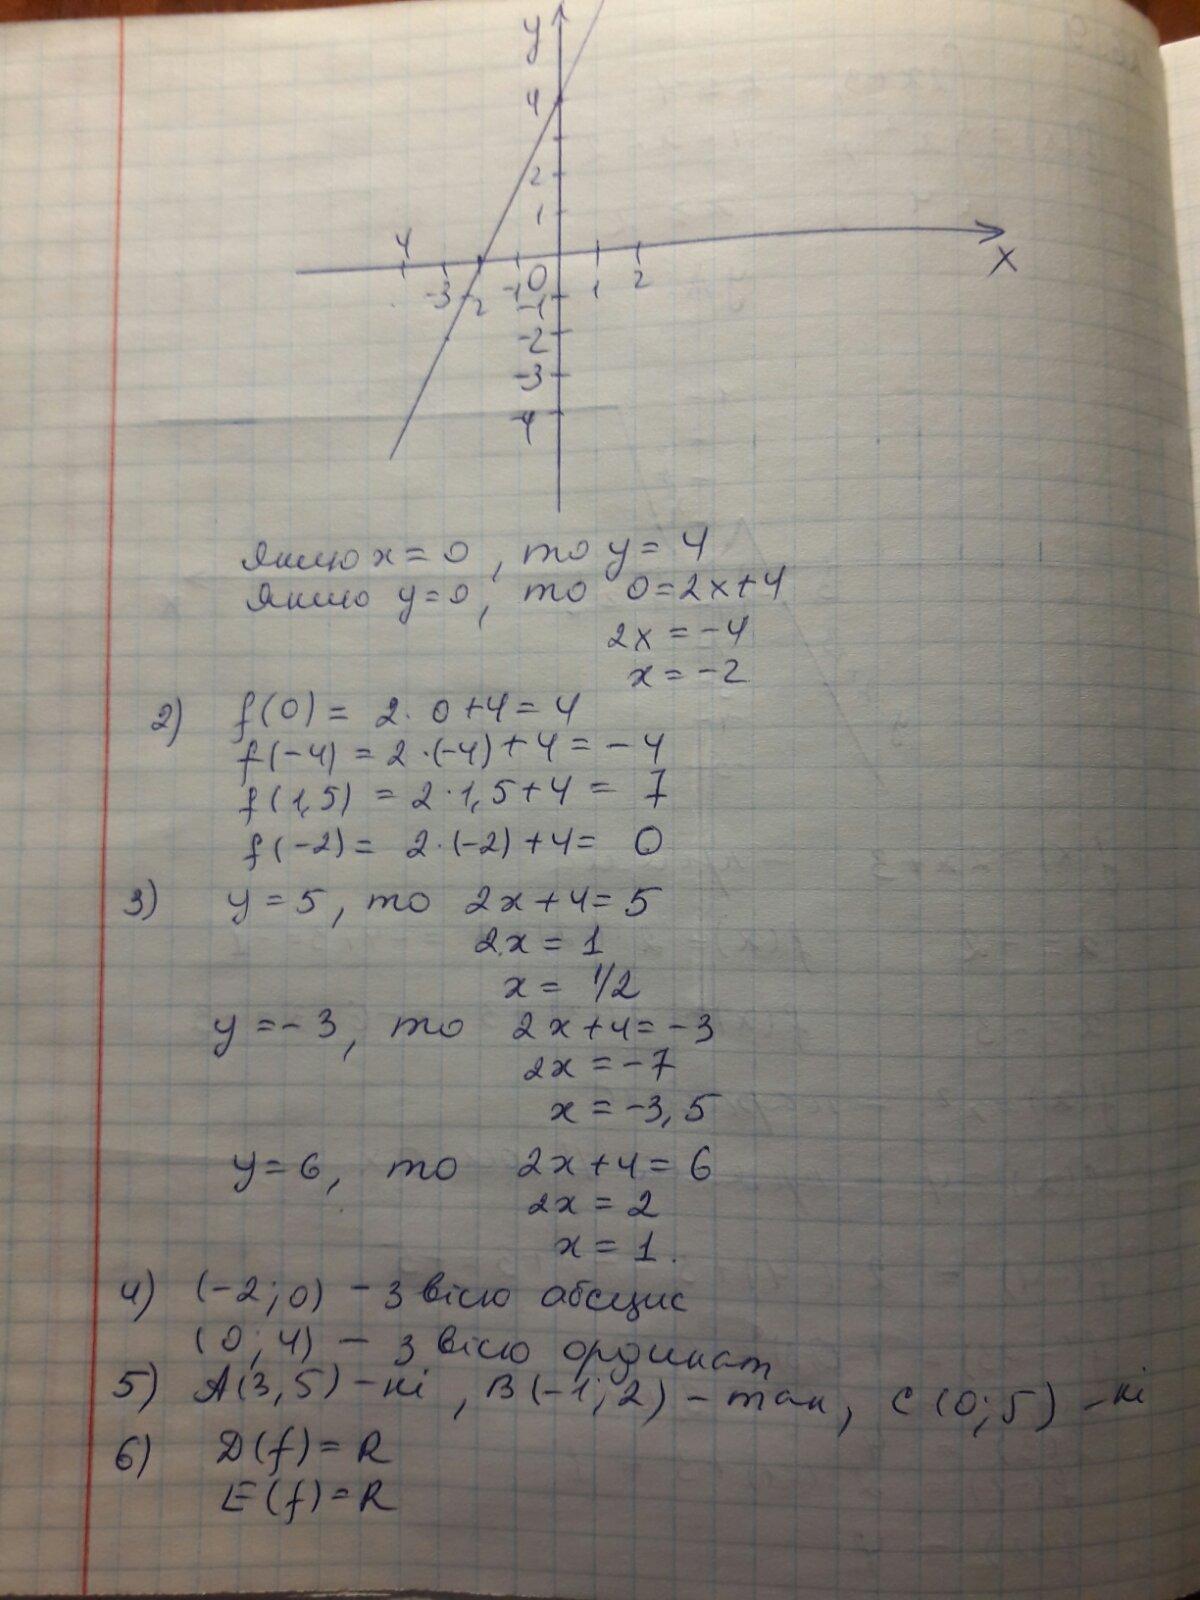 y
4
2
1
4 -3 -2 -1 0 1 2 x
-1
-2
-3
-4
Якщо x = 0, то y = 4
Якщо y = 0, то 0 = 2x + 4
2x = -4
x = -2
2) f(0) = 2 · 0 + 4 = 4
f(-4) = 2 · (-4) + 4 = -4
f(1,5) = 2 · 1,5 + 4 = 7
f(-2) = 2 · (-2) + 4 = 0
3) y = 5, то 2x + 4 = 5
2x = 1
x = 1/2
y = -3, то 2x + 4 = -3
2x = -7
x = -3,5
y = 6, то 2x + 4 = 6
2x = 2
x = 1.
4) (-2; 0) - З вісю абсцис
(0; 4) - З вісю ординат
5) A(3,5) - ні, B(-1; 2) - так, C(0; 5) - ні
6) D(f) = R
E(f) = R